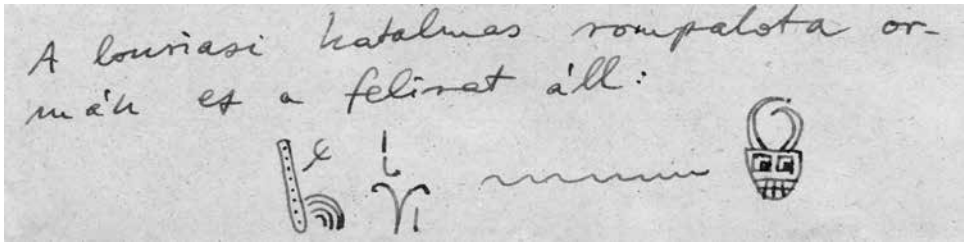 A louriasi hatalmas rompalota or-
mán ez a felirat áll: